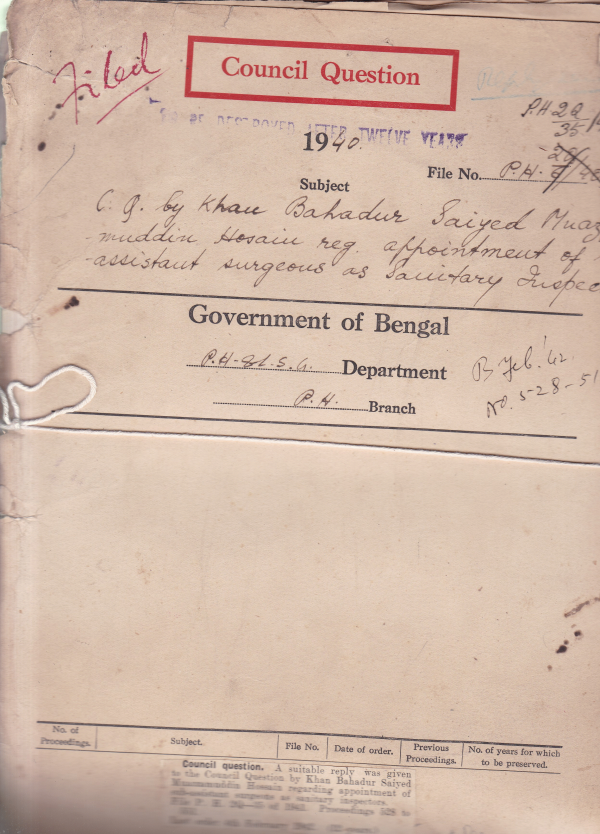 Filed
Council Question
TO BE DESTROYED AFTER TWELVE YEARS
P.H 2Q
35
1940.
File No. P.H.
Subject
C. Q. by Khan Bahadur Saiyed Muaz
-muddin Hosain reg. appointment of
-assistant surgeons as Sanitary Inspec
Government of Bengal
P.H & L.S.G. Department
P.H. Branch
B Feb. '42.
No. 528-51
No. of Proceedings. Subject. File No. Date of order. Previous Proceedings. No. of years for which to be preserved.
Council question. A suitable reply was given
to the Council Question by Khan Bahadur Saiyed
Hossain regarding appointment of
as sanitary inspectors.
of 1942. Proceedings